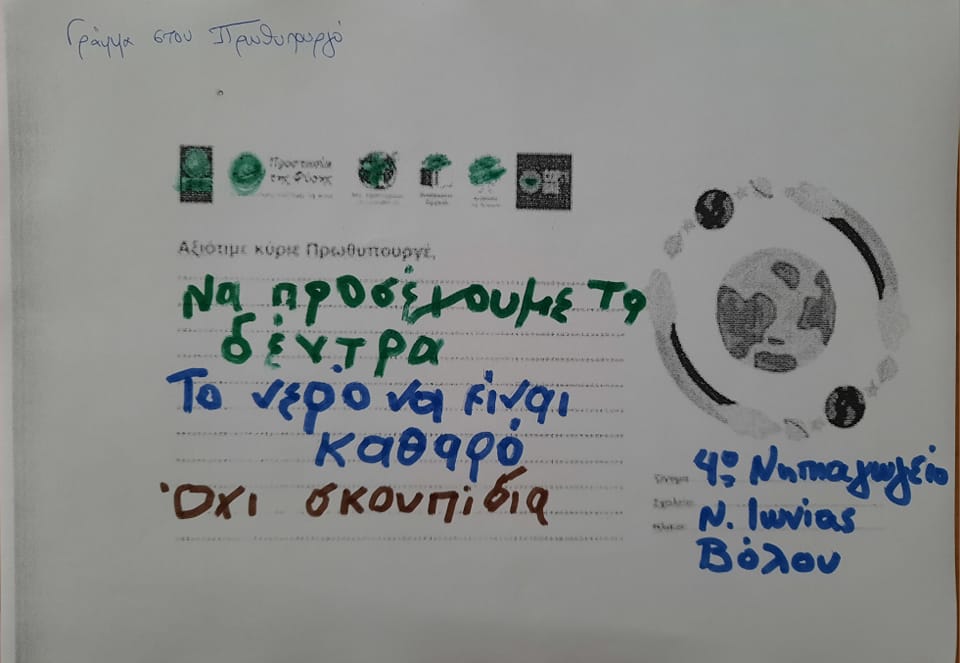 Γράμμα στον Πρωθυπουργό
Προστασία
της Φύσης
Αξιότιμε κύριε Πρωθυπουργέ,
Να προσέχουμε τα
δέντρα
Το νερό να είναι
καθαρό
Όχι σκουπίδια
Όνομα
4ο Νηπιαγωγείο
Σχολείο
Ν. Ιωνίας
Βόλου